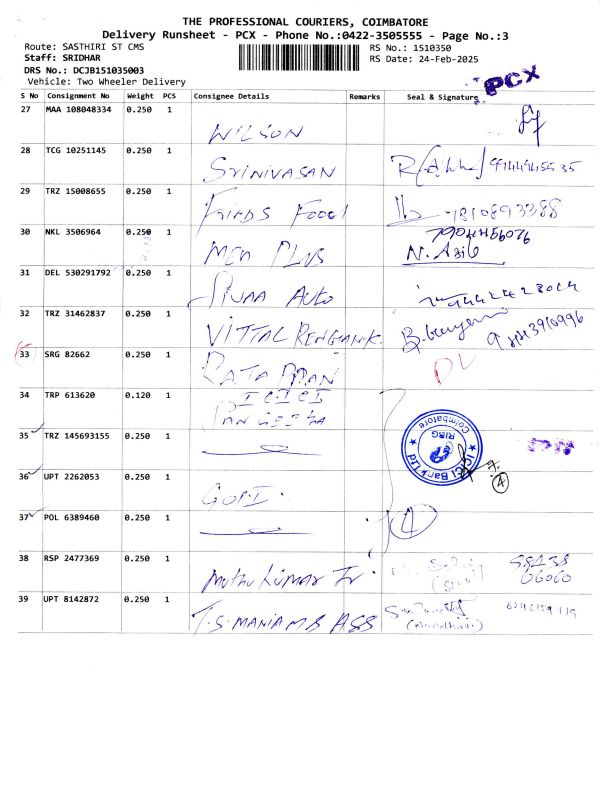 THE PROFESSIONAL COURIERS, COIMBATORE
Delivery Runsheet - PCX - Phone No.:0422-3505555 - Page No.:3
Route: SASTHIRI ST CMS RS No.: 1510350
Staff: SRIDHAR RS Date: 24-Feb-2025
DRS No.: DCJB151035003 PCX
Vehicle: Two Wheeler Delivery
S No Consignment No Weight PCS Consignee Details Remarks Seal & Signature
27 MAA 108048334 0.250 1 WILSON
28 TCG 10251145 0.250 1 SriNiVASAN
29 TRZ 15008655 0.250 1 Food
30 NKL 3506964 0.250 1 MEN PLUS N. Asik
31 DEL 530291792 0.250 1 Auto
32 TRZ 31462837 0.250 1 VITTAL
33 SRG 82662 0.250 1 DL
34 TRP 613620 0.120 1 ICICI
35 TRZ 145693155 0.250 1
ICICI Bank Ltd Coimbatore
36 UPT 2262053 0.250 1 GOPI. 4
37 POL 6389460 0.250 1 4
38 RSP 2477369 0.250 1 Muthu Kumar Tr 98438
06060
39 UPT 8142872 0.250 1 T.S. MANIAM & ASS